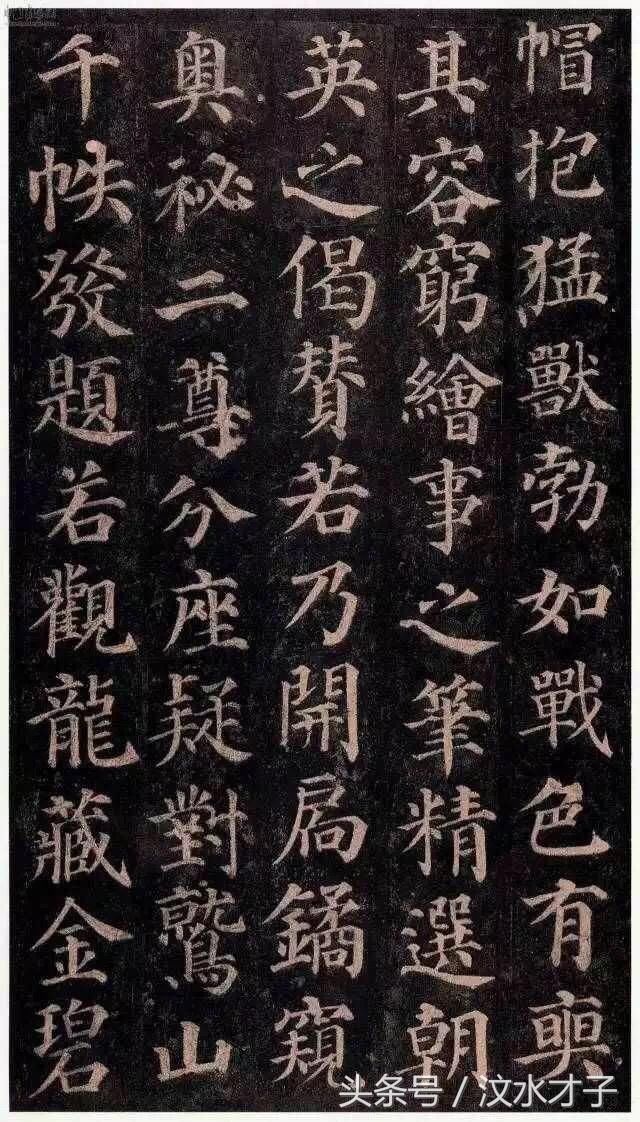 帽抱猛獸勃如戰色有奭
其容窮繪事之筆精選朝
英之偈贊若乃開扃鐍窺
奧祕二尊分座疑對鷲山
千帙發題若觀龍藏金碧
头条号 / 汶水才子